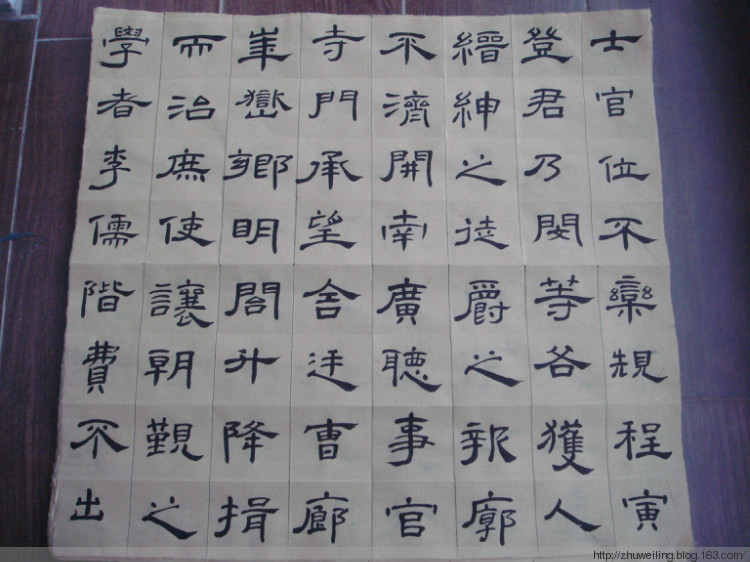 士官位不欒規程寅
登君乃閔等各獲人
縉紳之徒爵之報廓
不濟開南廣聽事官
寺門承望舍廷曹廊
崋嶽鄉明閣升降揖
而治庶使讓朝覲之
學者李儒階費不出
http://zhuweiling.blog.163.com/